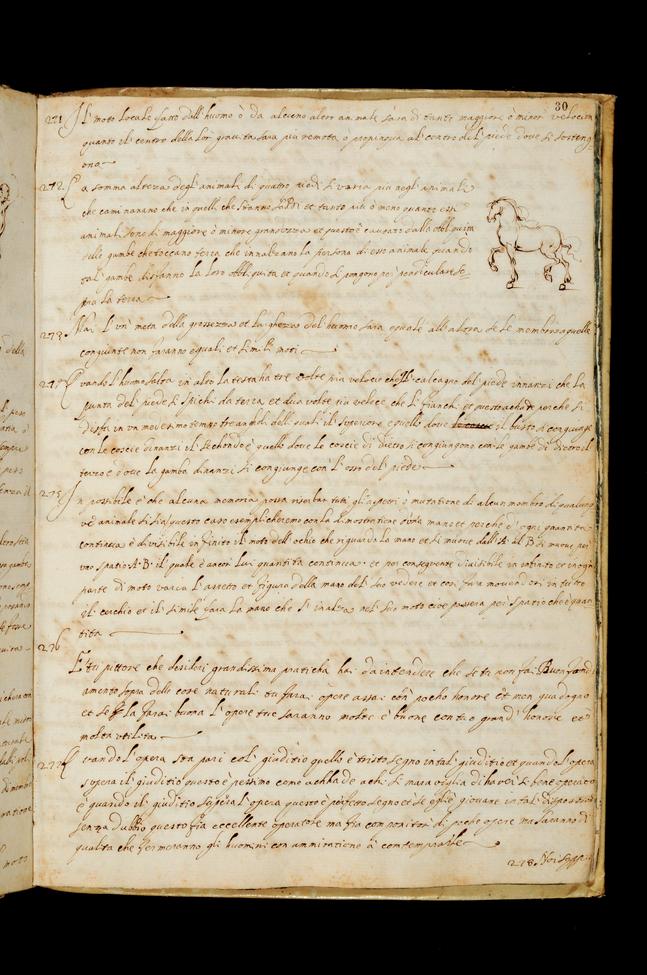 30
271 Il moto locale fatto dall'huomo ò da alcuno altro animale sara di tanto maggiore ò minor velocita
quanto il centro della lor gravita sara più remoto ò propinquo al centro del piede dove si sosteng
ono
272 La somma altezza degl'animali di quatro piedi si varia più negl'animali
che caminanano che in quelli che stanno saldi et tanto più ò meno quanto essi
animali sono di maggiore ò minore grandezza et questo è causato dalla obliquita
delle gambe che toccano terra che innalzano la persona di esso animale quando
tal gambe disfanno la loro obbliquita et quando si pongono perpendiculare so
pra la terra
273 Mai l'una meta della grossezza et larghezza del huomo sara equale all'altra se le membra a quelle
congiunte non saranno equali et simili moti
274 Quando l'huomo salta in alto la testa ha tre volte più veloce che'l calcagno del piede innanzi che la
punta del piede si spichi da terra et dua volte più veloce che li fianchi et questo achade perche si
disfan in un medemo tempo tre anguli delli quali il superiore è quello dove il busto si congiunge
con le coscie dinanzi il secondo è quello dove le coscie di dietro si congiungono con le gambe di dietro il
terzo è dove la gamba dinanzi si congiunge con l'osso del piede
275 In possibile è che alcuna memoria possa riserbar tutti gl'aspetti ò mutatione di alcun membro di qualunq
ue animale si sia questo caso esemplificheremo con la dimostratione d'una mano et perche ogni quantita
continua è divisibile in finito il moto dell'ochio che riguarda la mano et si muove dall'A al B si muove per
uno spatio A·B il quale è ancor lui quantita continua et per conseguente divisibile in infinito et in ogni
parte di moto varia l'aspetto et figura della mano nel suo vedere et cosi fara movendosi in tutto
il cerchio et il simile fara la mano che s'inalza nel suo moto cioe passera per spatio che è quan
tita
276
Et tu pittore che desideri grandissima praticha hai da intendere che se tu non fai Buon fond
amento sopra delle cose naturali tu farai opere assai con pocho honore et men guadagno
et se la farai buona l'opere tue saranno molte è buone con tuo grand'honore et
molta utilita
277 Quando l'opera sta pari col giuditio quello è tristo segno in tal giuditio et quando l'opera
supera il giuditio questo è pessimo como achade a chi si maraviglia di haver si bene operato
è quando il giuditio supera l'opera questo è perfetto segno et se gliè giovane in tal dispositione
senza dubbio questo fia eccellente operatore ma fia componitor di poche opere ma saranno di
qualita che fermeranno gli huomini con ammiratione à contemplarle
278 Noi